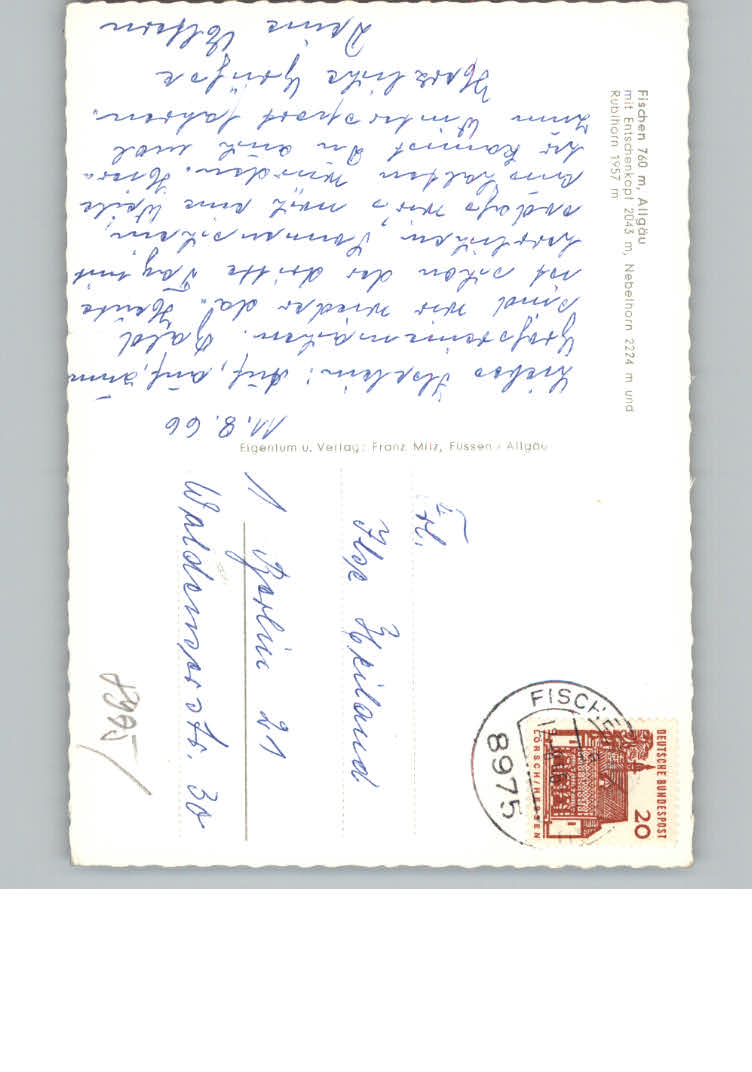 Fischen 760 m, Allgäu
mit Entschenkopf 2043 m, Nebelhorn 2224 m und
Rubihorn 1957 m
11.8.66
Liebes Ilselein! Auf, auf, zum
sind wir wieder da. Heute
ist schon der dritte Tag mit
herrlichem Sonnenschein,
sodass wir's noch eine Weile
aushalten würden. Hier
her kannst Du auch mal
zum Wintersport fahren.
Herzliche Grüße
Deine Eltern
Eigentum u. Verlag: Franz Milz, Füssen / Allgäu
Frl.
Ilse Heiland
1 Berlin 21
Waldenserstr. 30
8975
DEUTSCHE BUNDESPOST
20
LORSCH/HESSEN
FISCHEN
8975